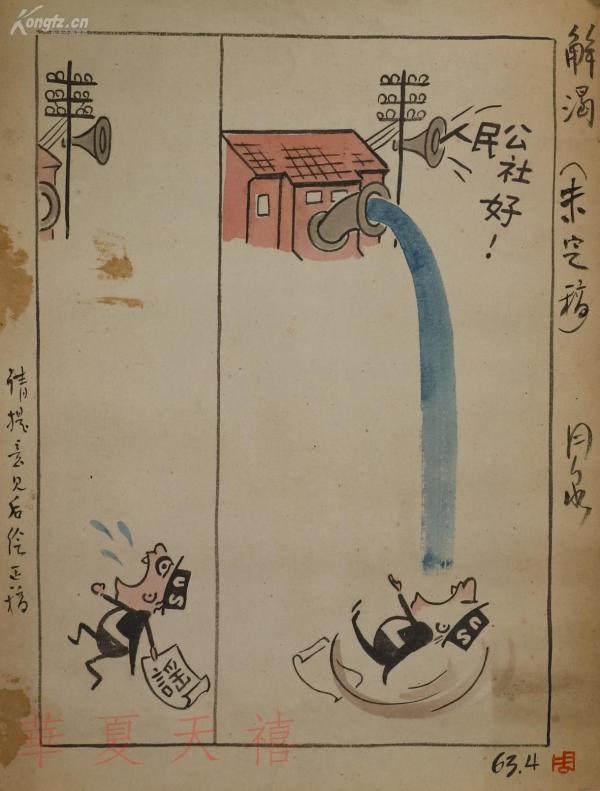 Kongfz.cn
解渴（未定稿）
月泉
人民公社好！
US
US
謡
请提意见后绘正稿
華夏天禧
63.4
周